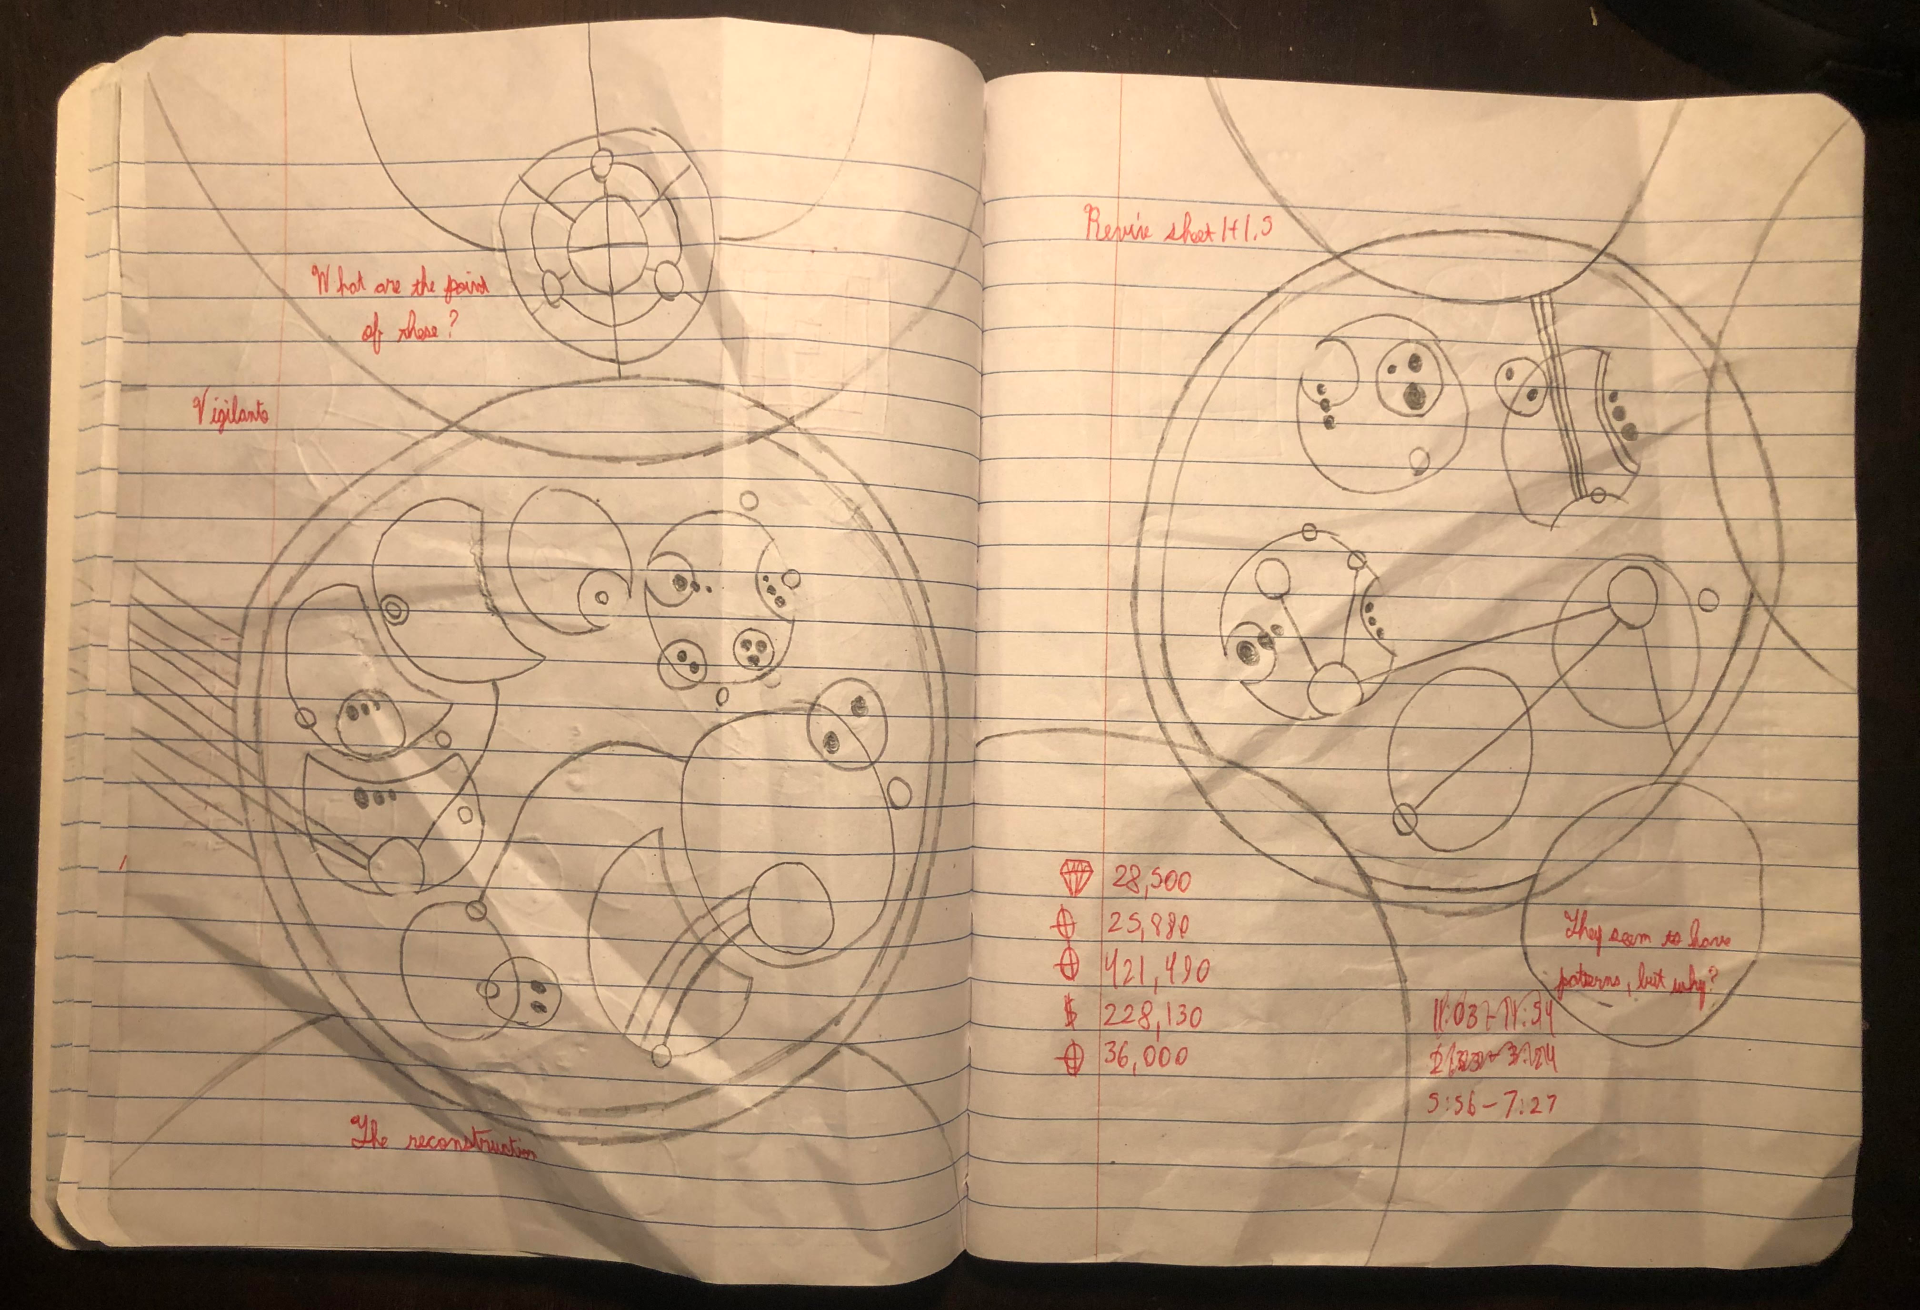 What are the point
of these?
Vigilante
The reconstruction
Revise sheet
28,500
25,980
421,490
$ 228,130
36,000
They seem to have
patterns, but why?
11:03-11:54
5:56-7:27